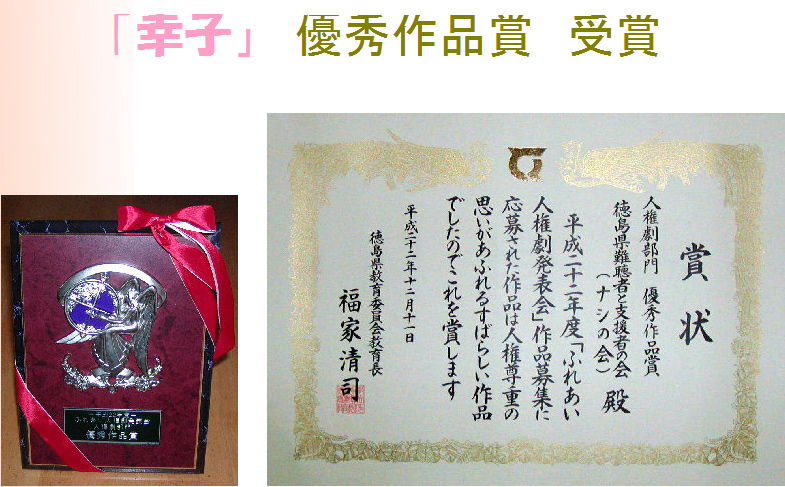 「幸子」 優秀作品賞 受賞
賞状
人権劇部門 優秀作品賞
徳島県難聴者と支援者の会
(ナシの会) 殿
平成二十二年度「ふれあい
人権劇発表会」作品募集に
応募された作品は人権尊重の
思いがあふれるすばらしい作品
でしたのでこれを賞します
平成二十二年十二月十一日
徳島県教育委員会教育長
福家清司
人権劇部門
優秀作品賞